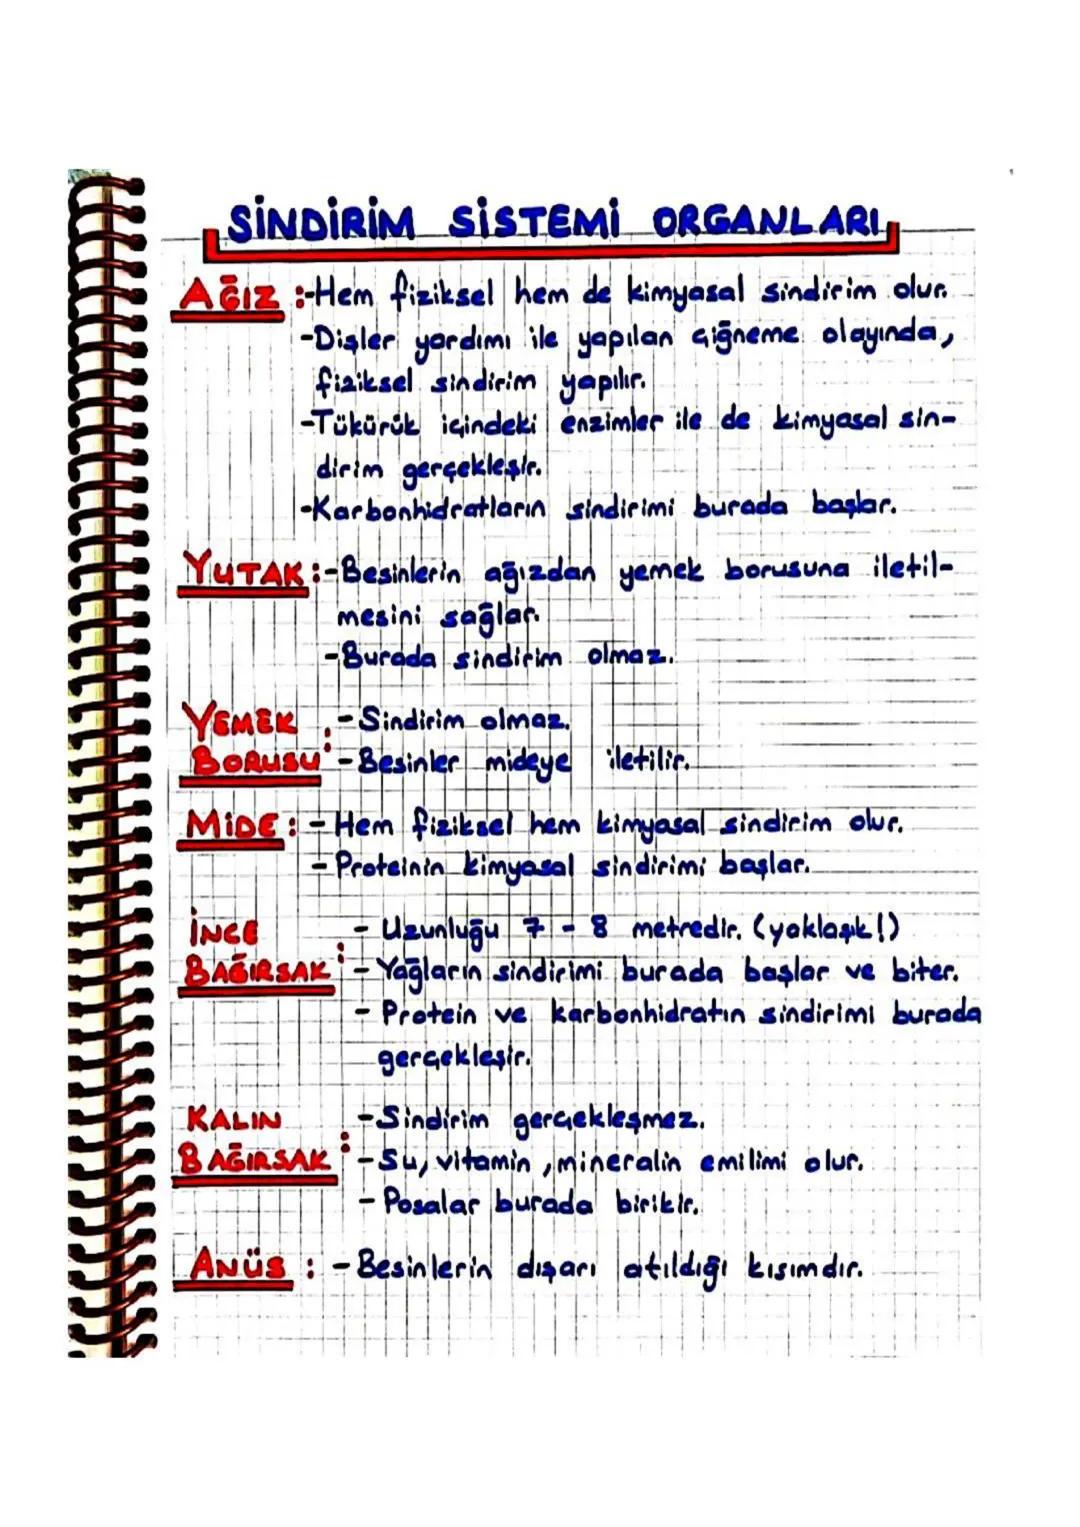 SİNDİRİM SİSTEMİ ORGANLARI
AĞIZ :-Hem fiziksel hem de kimyasal sindirim olur.
-Dişler yardımı ile yapılan çiğneme olayında,
fiziksel sindirim yapılır.
-Tükürük içindeki enzimler ile de kimyasal sin-
dirim gerçekleşir.
-Karbonhidratların sindirimi burada başlar.
YUTAK :-Besinlerin ağızdan yemek borusuna iletil-
mesini sağlar.
-Burada sindirim olmaz.
YEMEK - Sindirim olmaz.
BORUSU : - Besinler mideye iletilir.
MİDE : - Hem fiziksel hem kimyasal sindirim olur.
- Proteinin kimyasal sindirimi başlar.
İNCE - Uzunluğu 7 - 8 metredir. (yaklaşık!)
BAĞIRSAK : - Yağların sindirimi burada başlar ve biter.
- Protein ve karbonhidratın sindirimi burada
gerçekleşir.
KALIN - Sindirim gerçekleşmez.
BAĞIRSAK : - Su, vitamin, mineralin emilimi olur.
- Posalar burada birikir.
ANÜS : - Besinlerin dışarı atıldığı kısımdır.